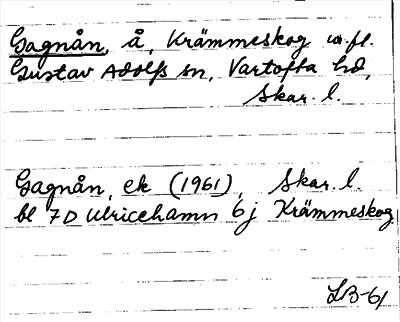 Gagnån, å, Krämmeskog m.fl.
Gustav Adolfs sn, Vartofta hd,
Skar. l.
Gagnån, ek (1961), Skar. l.
bl 7D Ulricehamn 6j Krämmeskog
LB-61